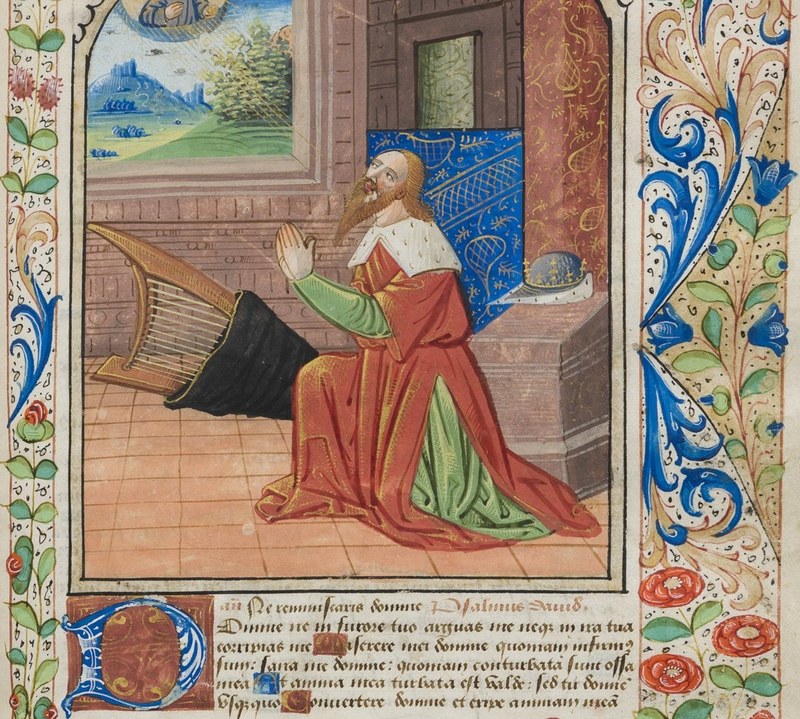 an Ne reminiscaris domine Psalmus david.
Domine ne in furore tuo arguas me neqz in ira tua
corripias me Miserere mei domine quoniam infirmus
sum: sana me domine: quoniam conturbata sunt ossa
mea Et anima mea turbata est valde: sed tu domine
Usqz quo Convertere domine et eripe animam meã